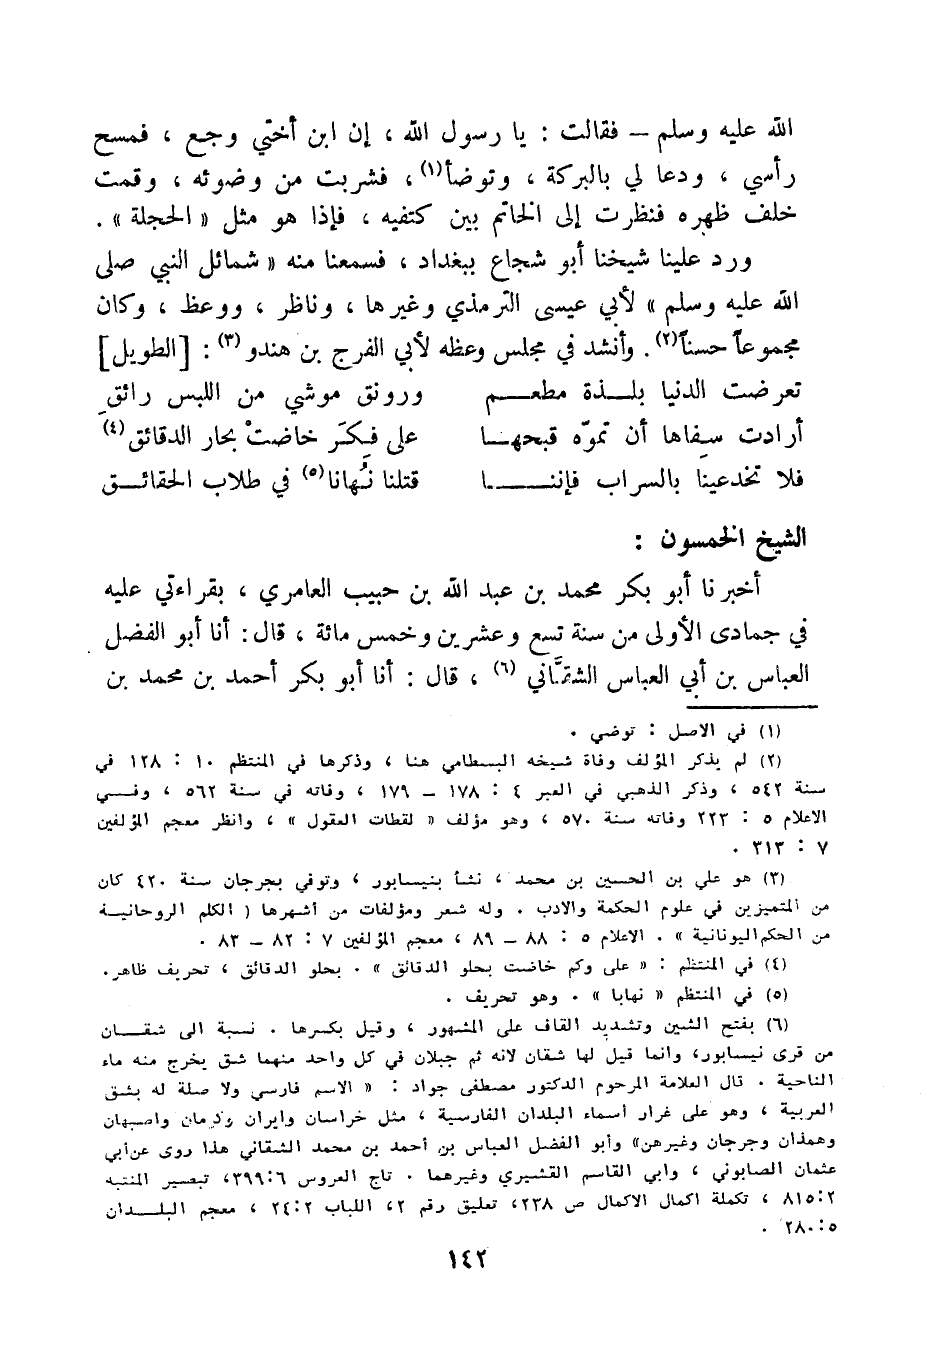 الله عليه وسلم – فقالت : يا رسول الله ، إن ابن أختي وجع ، فمسح
رأسي ، ودعا لي بالبركة ، وتوضأ(١)، فشربت من وضوئه ، وقمت
خلف ظهره فنظرت إلى الخاتم بين كتفيه ، فإذا هو مثل « الحجلة » .
ورد علينا شيخنا أبو شجاع ببغداد ، فسمعنا منه « شمائل النبي صلى
الله عليه وسلم » لأبي عيسى الترمذي وغيرها ، وناظر ، ووعظ ، وكان
مجموعاً حسناً(٢). وأنشد في مجلس وعظه لأبي الفرج بن هندو (٣) : [الطويل]
تعرضت الدنيا بلـــذة مطعـــم ورونق موشي من اللبس رائقِ
أرادت سِفاها أن تموّه قبحهـا على فِكَر خاضتْ بحار الدقائق(٤)
فلا تخدعينا بالسراب فإننـــا قتلنا نُهانا(٥) في طلاب الحقائق
الشيخ الخمسون :
أخبرنا أبو بكر محمد بن عبد الله بن حبيب العامري ، بقراءتي عليه
في جمادى الأولى من سنة تسع وعشرين وخمس مائة ، قال: أنا أبو الفضل
العباس بن أبي العباس الشقَّاني (٦) ، قال : أنا أبو بكر أحمد بن محمد بن
(١) في الاصل : توضي .
(٢) لم يذكر المؤلف وفاة شيخه البسطامي هنا ، وذكرها في المنتظم ١٠ : ١٢٨ في
سنة ٥٤٢ ، وذكر الذهبي في العبر ٤ : ١٧٨ – ١٧٩ ، وفاته في سنة ٥٦٢ ، وفــي
الاعلام ٥ : ٢٢٣ وفاته سنة ٥٧٠ ، وهو مؤلف « لقطات العقول » ، وانظر معجم المؤلفين
٧ : ٣١٣ .
(٣) هو علي بن الحسين بن محمد ، نشأ بنيسابور ، وتوفي بجرجان سنة ٤٢٠ كان
من المتميزين في علوم الحكمة والادب . وله شعر ومؤلفات من أشهرها ( الكلم الروحانية
من الحكم اليونانية » . الاعلام ٥ : ٨٨ – ٨٩ ، معجم المؤلفين ٧ : ٨٢ – ٨٣ .
(٤) في المنتظم : « على وكم خاضت بحلو الدقائق » . بحلو الدقائق ، تحريف ظاهر.
(٥) في المنتظم « نهابا » . وهو تحريف .
(٦) بفتح الشين وتشديد القاف على المشهور ، وقيل بكسرها . نسبة الى شقــان
من قرى نيسابور، وانما قيل لها شقان لانه ثم جبلان في كل واحد منهما شق يخرج منه ماء
الناحية . قال العلامة المرحوم الدكتور مصطفى جواد : « الاسم فارسي ولا صلة له بشق
العربية ، وهو على غرار أسماء البلدان الفارسية ، مثل خراسان وايران وكرمان واصبهان
وهمذان وجرجان وغيرهن» وأبو الفضل العباس بن أحمد بن محمد الشقاني هذا روى عن أبي
عثمان الصابوني ، وابي القاسم القشيري وغيرهما . تاج العروس ٣٩٩:٦، تبصير المنتبه
٨١٥:٢ ، تكملة اكمال الاكمال ص ٢٣٨، تعليق رقم ٢، اللباب ٢٤:٢ ، معجم البلــدان
٢٨٠:٥ .
١٤٢